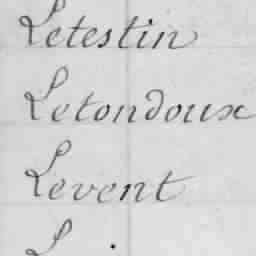 Letestin
Letondoux
Levent